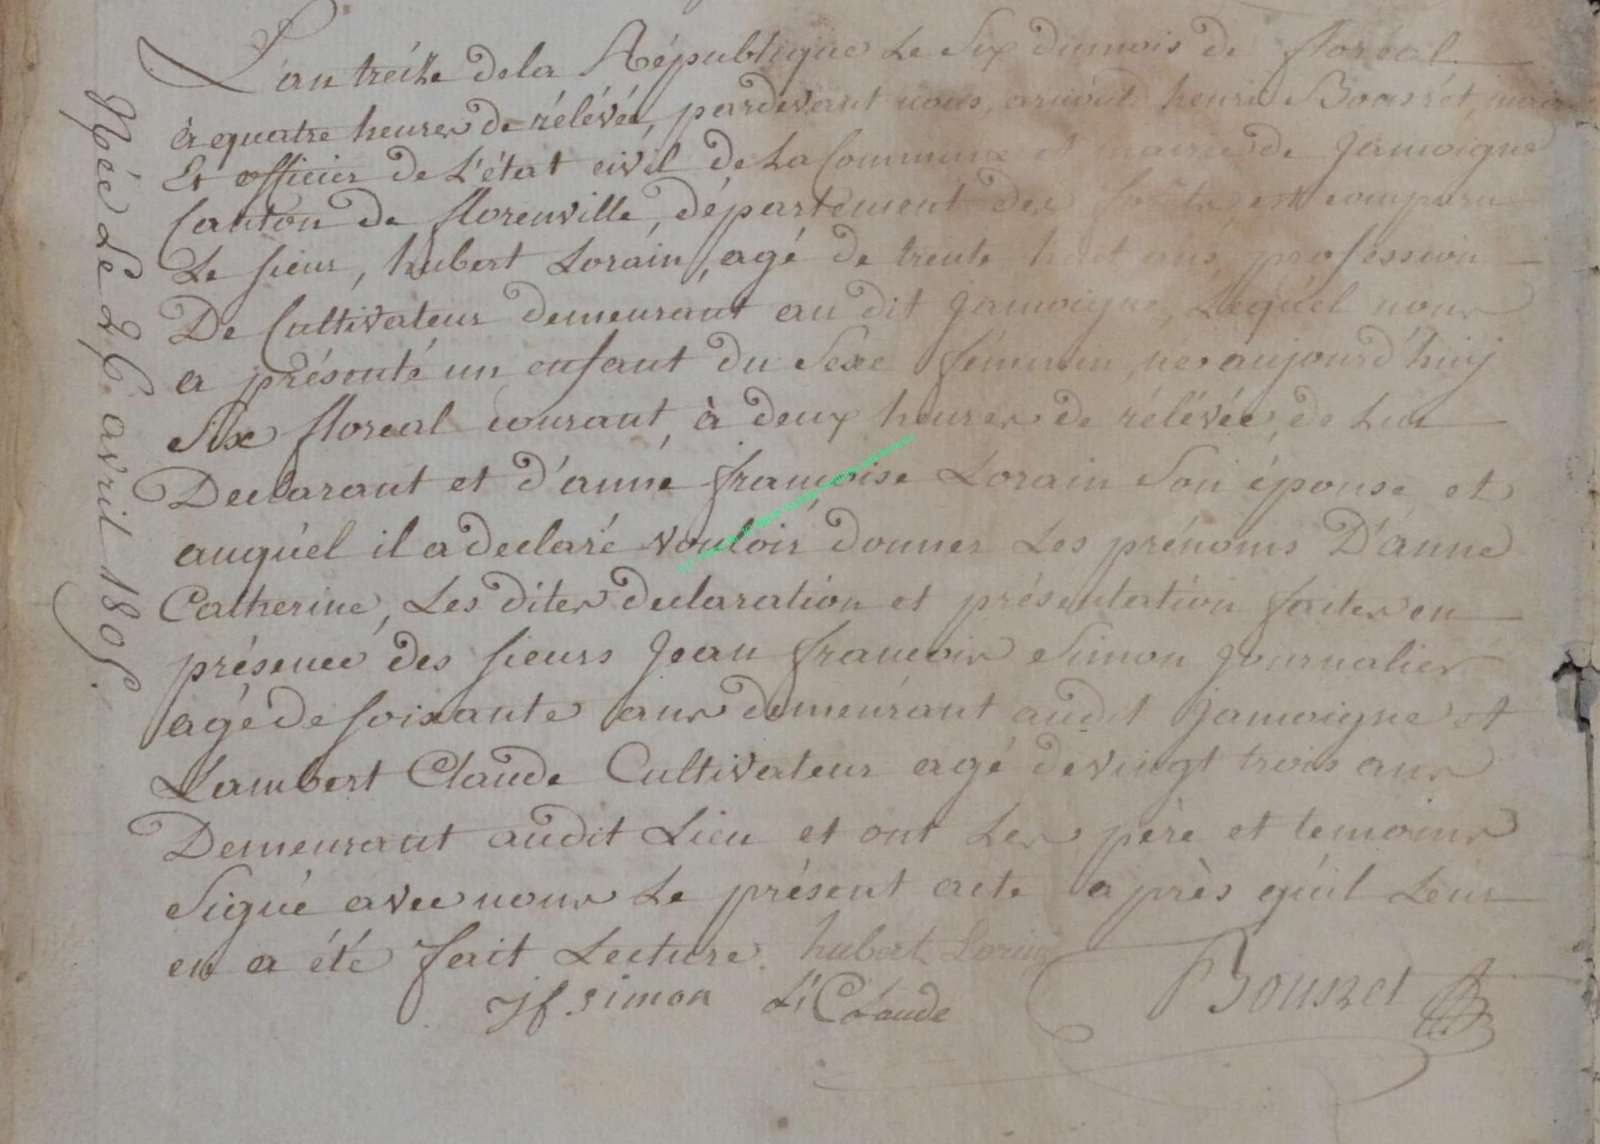 L'an treize de la République Le Six dumois de floréal
à quatre heures de rélévée, pardevant nous, arnould henri Bousret, maire
Et officier de L'état civil de La Commune et mairie de Jamoigne
Canton de florenville, département des forêts, est comparu
Le sieur, hubert Lorain, agé de trente huit ans, profession
De Cultivateur demeurant au dit Jamoigne, Lequel nous
a présenté un enfant du Sexe féminin, né aujourd'huij
Six floreal courant, à deux heures de rélévée, de Lui
Declarant et d'anne françoise Lorain Son épouse et
auquel il a declaré vouloir donner Les prénoms D'anne
Catherine, Les dites declaration et présentation faites en
présence des sieurs Jean francois Simon Journalier
agé de soixante ans demeurant audit Jamoigne et
Lambert Claude Cultivateur agé de vingt trois ans
Demeurant audit Lieu et ont Les père et temoins
Signé avec nous Le présent acte après qu'il Leur
en a été fait Lecture. hubert Lorain
jf. simon L. Claude Bousret
Née Le 26 avril 1805.